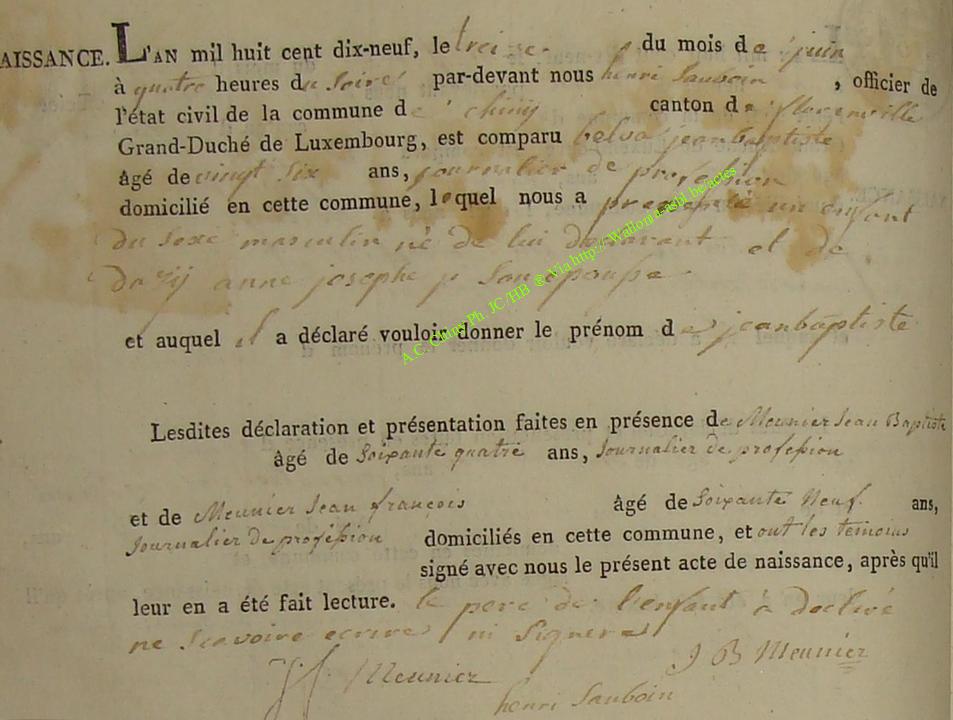 AISSANCE. L'AN mil huit cent dix-neuf, le treize du mois de juin
à quatre heures du soire par-devant nous henri Sauboin , officier de
l'état civil de la commune de chiny canton de florenville
Grand-Duché de Luxembourg, est comparu belva jeanbaptiste
âgé de vingt six ans, journalier de profession
domicilié en cette commune, lequel nous a presenté un enfant
du sexe masculin né de lui declarant et de
dazij anne josephe son epouse
et auquel il a déclaré vouloir donner le prénom de jeanbaptiste
A.C. Chiny Ph. JC/HB @ Via http://Wallonia-asbl.be/actes
Lesdites déclaration et présentation faites en présence de Meunier Jean Baptiste
âgé de Soixante quatre ans, Journalier de profession
et de Meunier Jean françois âgé de Soixante Neuf. ans,
Journalier de profession domiciliés en cette commune, et ont les temoins
signé avec nous le présent acte de naissance, après qu'il
leur en a été fait lecture. le pere de l'enfant à declaré
ne Scavoire ecrire ni Signer
J f Meunier J B Meunier
henri Sauboin